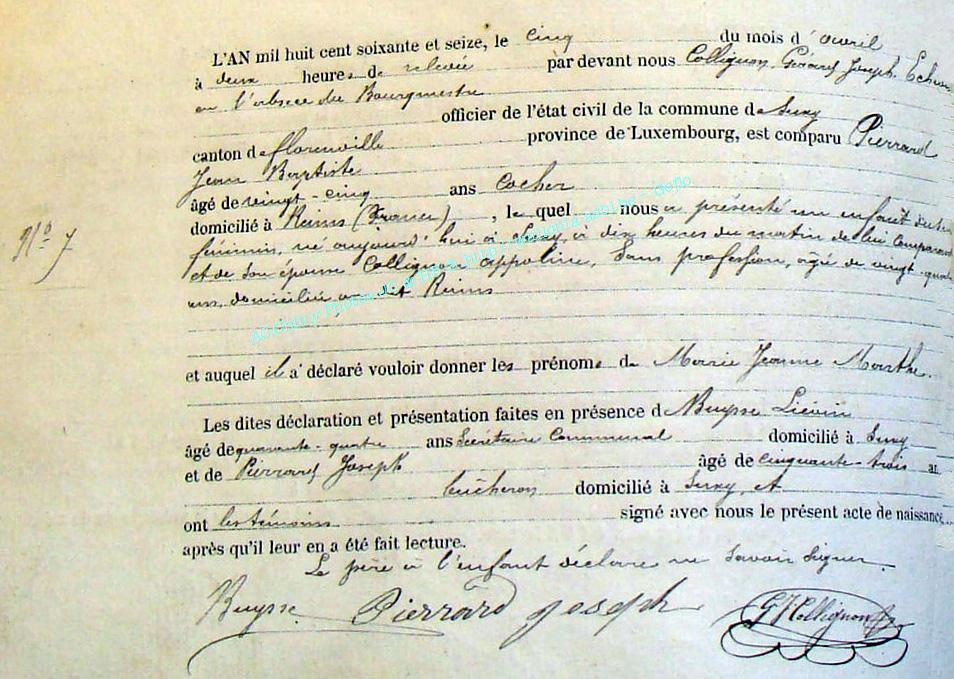 L'AN mil huit cent soixante et seize, le cinq du mois d'avril
à deux heures de relevée par devant nous Collignon, Gérard Joseph Echevin
en l'absce du Bourgmestre
officier de l'état civil de la commune de Suxy
canton de florenville province de Luxembourg, est comparu Pierrard
Jean Baptiste
âgé de vingt-cinq ans Cocher
domicilié à Reims (France), lequel nous a présenté un enfant du sexe
N° 7
féminin, né aujourd'hui à Suxy, à dix heures du matin de lui Comparant
et de son épouse Collignon Appoline, sans profession, âgé de vingt-quatre
ans, domiciliée au dit Reims
et auquel il a déclaré vouloir donner les prénoms de Marie Jeanne Marthe.
Les dites déclaration et présentation faites en présence de Buysse Liévin
âgé de quarante-quatre ans Secrétaire Communal domicilié à Suxy
et de Pierrard Joseph âgé de cinquante-trois an
bûcheron domicilié à Suxy, et
ont les témoins signé avec nous le présent acte de naissance
après qu'il leur en a été fait lecture.
Le père à l'enfant déclare ne savoir signer.
Buysse Pierrard joseph GJCollignon